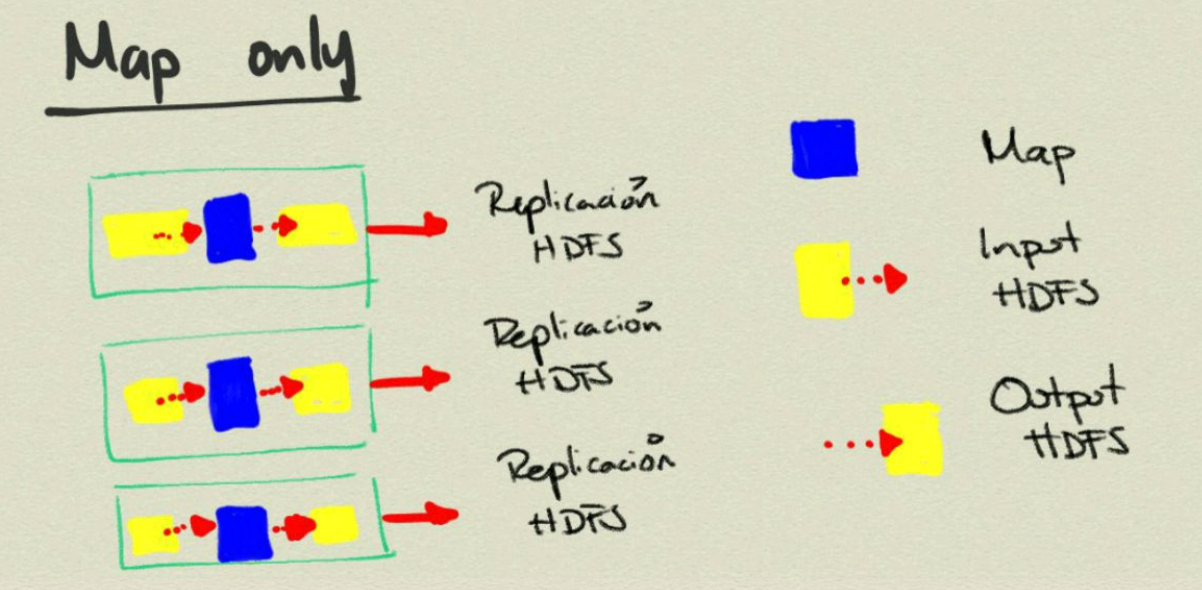 Map only
Replicación
HDFS
Replicación
HDFS
Replicación
HDFS
Map
Input
HDFS
Output
HDFS